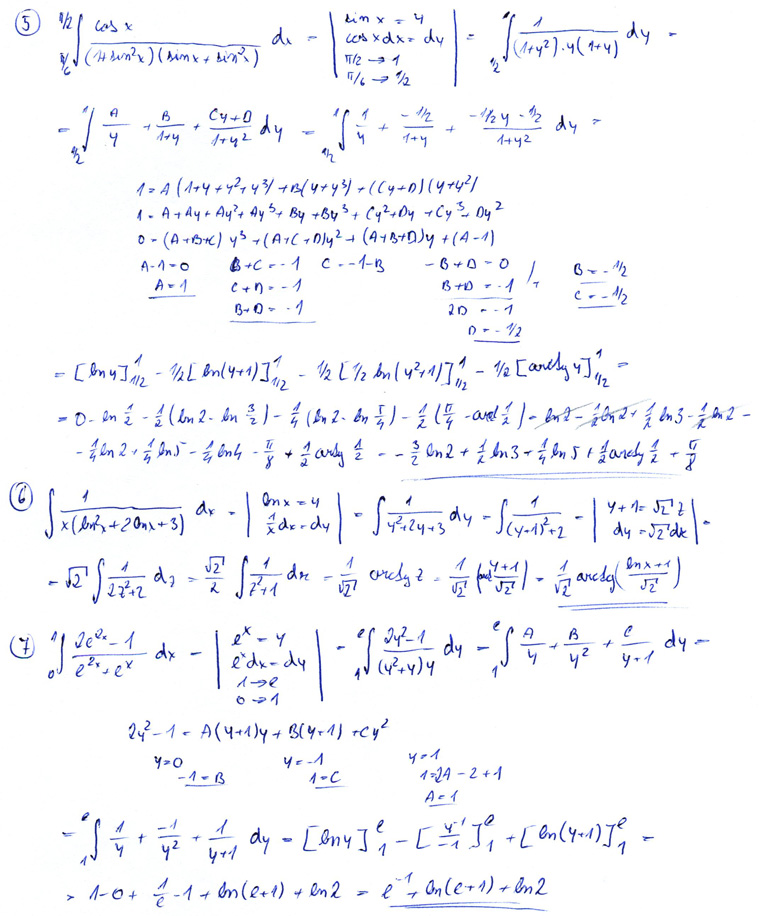 ⑤ ∫_{π/6}^{π/2} cos x / ((1+sin²x)(sin x + sin²x)) dx = | sin x = y ; cos x dx = dy ; π/2 → 1 ; π/6 → 1/2 | = ∫_{1/2}^{1} 1/((1+y²)·y(1+y)) dy =
= ∫_{1/2}^{1} A/y + B/(1+y) + (Cy+D)/(1+y²) dy = ∫_{1/2}^{1} 1/y + (-1/2)/(1+y) + (-1/2y - 1/2)/(1+y²) dy =
1 = A(1+y+y²+y³) + B(y+y³) + (Cy+D)(y+y²)
1 = A + Ay + Ay² + Ay³ + By + By³ + Cy² + Dy + Cy³ + Dy²
0 = (A+B+C)y³ + (A+C+D)y² + (A+B+D)y + (A-1)
A-1=0 B+C=-1 C=-1-B -B+D=0 /+ B=-1/2
A=1 C+D=-1 B+D=-1 C=-1/2
B+D=-1 2D=-1
D=-1/2
= [ln y]_{1/2}^{1} - 1/2[ln(y+1)]_{1/2}^{1} - 1/2[1/2 ln(y²+1)]_{1/2}^{1} - 1/2[arctg y]_{1/2}^{1} =
= 0 - ln 1/2 - 1/2(ln2 - ln 3/2) - 1/4(ln2 - ln 5/4) - 1/2(π/4 - arct 1/2) = ln2 - 1/2 ln2 + 1/2 ln3 - 1/2 ln2 -
- 1/4 ln2 + 1/4 ln5 - 1/4 ln4 - π/8 + 1/2 arctg 1/2 = -3/2 ln2 + 1/2 ln3 + 1/4 ln5 + 1/2 arctg 1/2 + π/8
⑥ ∫ 1/(x(ln²x+2lnx+3)) dx = | ln x = y ; 1/x dx = dy | = ∫ 1/(y²+2y+3) dy = ∫ 1/((y+1)²+2) = | y+1 = √2 z ; dy = √2 dz | =
= √2 ∫ 1/(2z²+2) dz = √2/2 ∫ 1/(z²+1) dz = 1/√2 arctg z = 1/√2 (arct (y+1)/√2) = 1/√2 arctg((ln x+1)/√2)
⑦ ∫_{0}^{1} (2e^{2x}-1)/(e^{2x}+e^x) dx = | e^x = y ; e^x dx = dy ; 1 → e ; 0 → 1 | = ∫_{1}^{e} (2y²-1)/((y²+y)y) dy = ∫_{1}^{e} A/y + B/y² + C/(y+1) dy =
2y²-1 = A(y+1)y + B(y+1) + Cy²
y=0 y=-1 y=1
-1=B 1=C 1=2A-2+1
A=1
= ∫_{1}^{e} 1/y + (-1)/y² + 1/(y+1) dy = [ln y]_{1}^{e} - [y^{-1}/(-1)]_{1}^{e} + [ln(y+1)]_{1}^{e} =
= 1-0 + 1/e - 1 + ln(e+1) + ln2 = e^{-1} + ln(e+1) + ln2